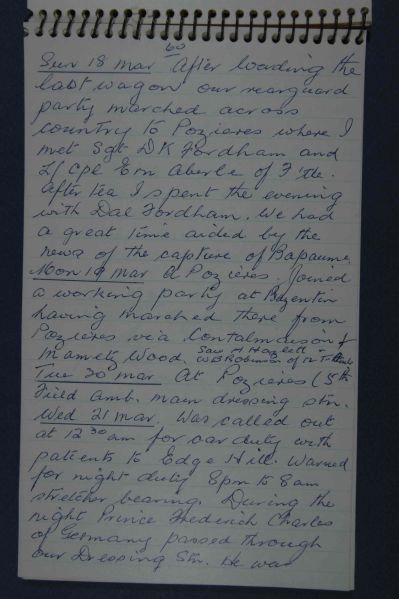 60
Sun 18 Mar After loading the
last wagon our rearguard
party marched across
country to Pozieres where I
met Sgt D K Fordham and
L/Cpl Ern Aberle of F'tle.
After tea I spent the evening
with Dal Fordham. We had
a great time aided by the
news of the capture of Bapaume
Mon 19 Mar a Pozieres. Joined
a working party at Bazentin
having marched there from
Pozieres via Contalmaison &
Mametz Wood. Saw A Hazlett +
W B Robinson of 12
Tue 20 Mar At Pozieres (5th
Field Amb. main dressing stn.
Wed 21 Mar. Was called out
at 12 30 am for car duty with
patients to Edge Hill. Warned
for night duty 8pm to 8am
stretcher bearing. During the
night Prince Frederich Charles
of Germany passed through
our Dressing Stn. He was